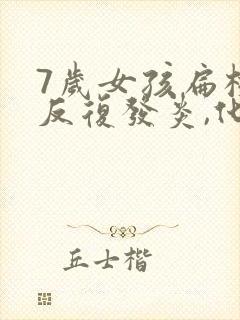 7歲女孩扁桃
反復發炎,他
丘士楷